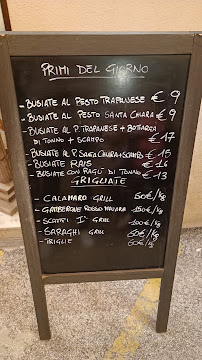 PRIMI DEL GIORNO
BUSIATE AL PESTO TRAPANESE € 9
- BUSIATE AL PESTO SANTA CHIARA € 9
- BUSIATE AL P. TRAPANESE + BOTTARGA
DI TONNO + SCAMPO € 17
BUSIATE AL P. SANTA CHIARA + SCAMPO € 15
BUSIATE RAIS € 16
- BUSIATE CON RAGÙ DI TONNO € 13
GRIGLIATE
- CALAMARO GRILL 60€/KG
- GAMBERONE ROSSO MAZARA 150€/KG
- SCAMPI 1ª GRILL 100€/KG
- SARAGHI GRILL 60€/KG
- TRIGLIE 60€/KG